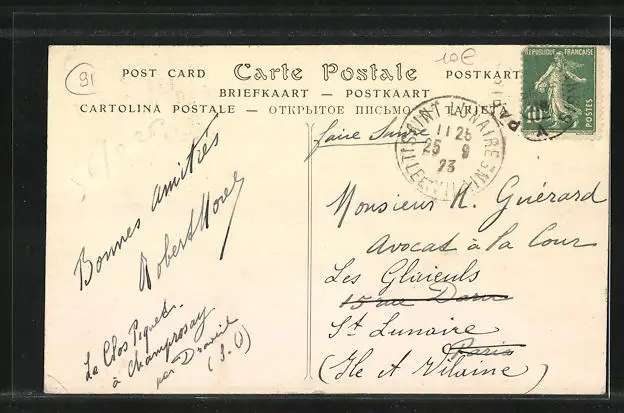 91
10€
POST CARD Carte Postale POSTKARTE
BRIEFKAART — POSTKAART
CARTOLINA POSTALE — ОТКРЫТОЕ ПИСЬМО — TARJETA
RÉPUBLIQUE FRANÇAISE
10
POSTES
PARIS
SAINT LUNAIRE
11 25
25 9
23
ILLE ET VILAINE
faire suivre
Bonnes amitiés
Robert Morel
Le Clos Piquet
à Champrosay
par Draveil
(S.O)
Monsieur H. Guérard
Avocat à la Cour
Les Glaïeuls
15 rue Daru
St Lunaire
Paris
(Ile et Vilaine)